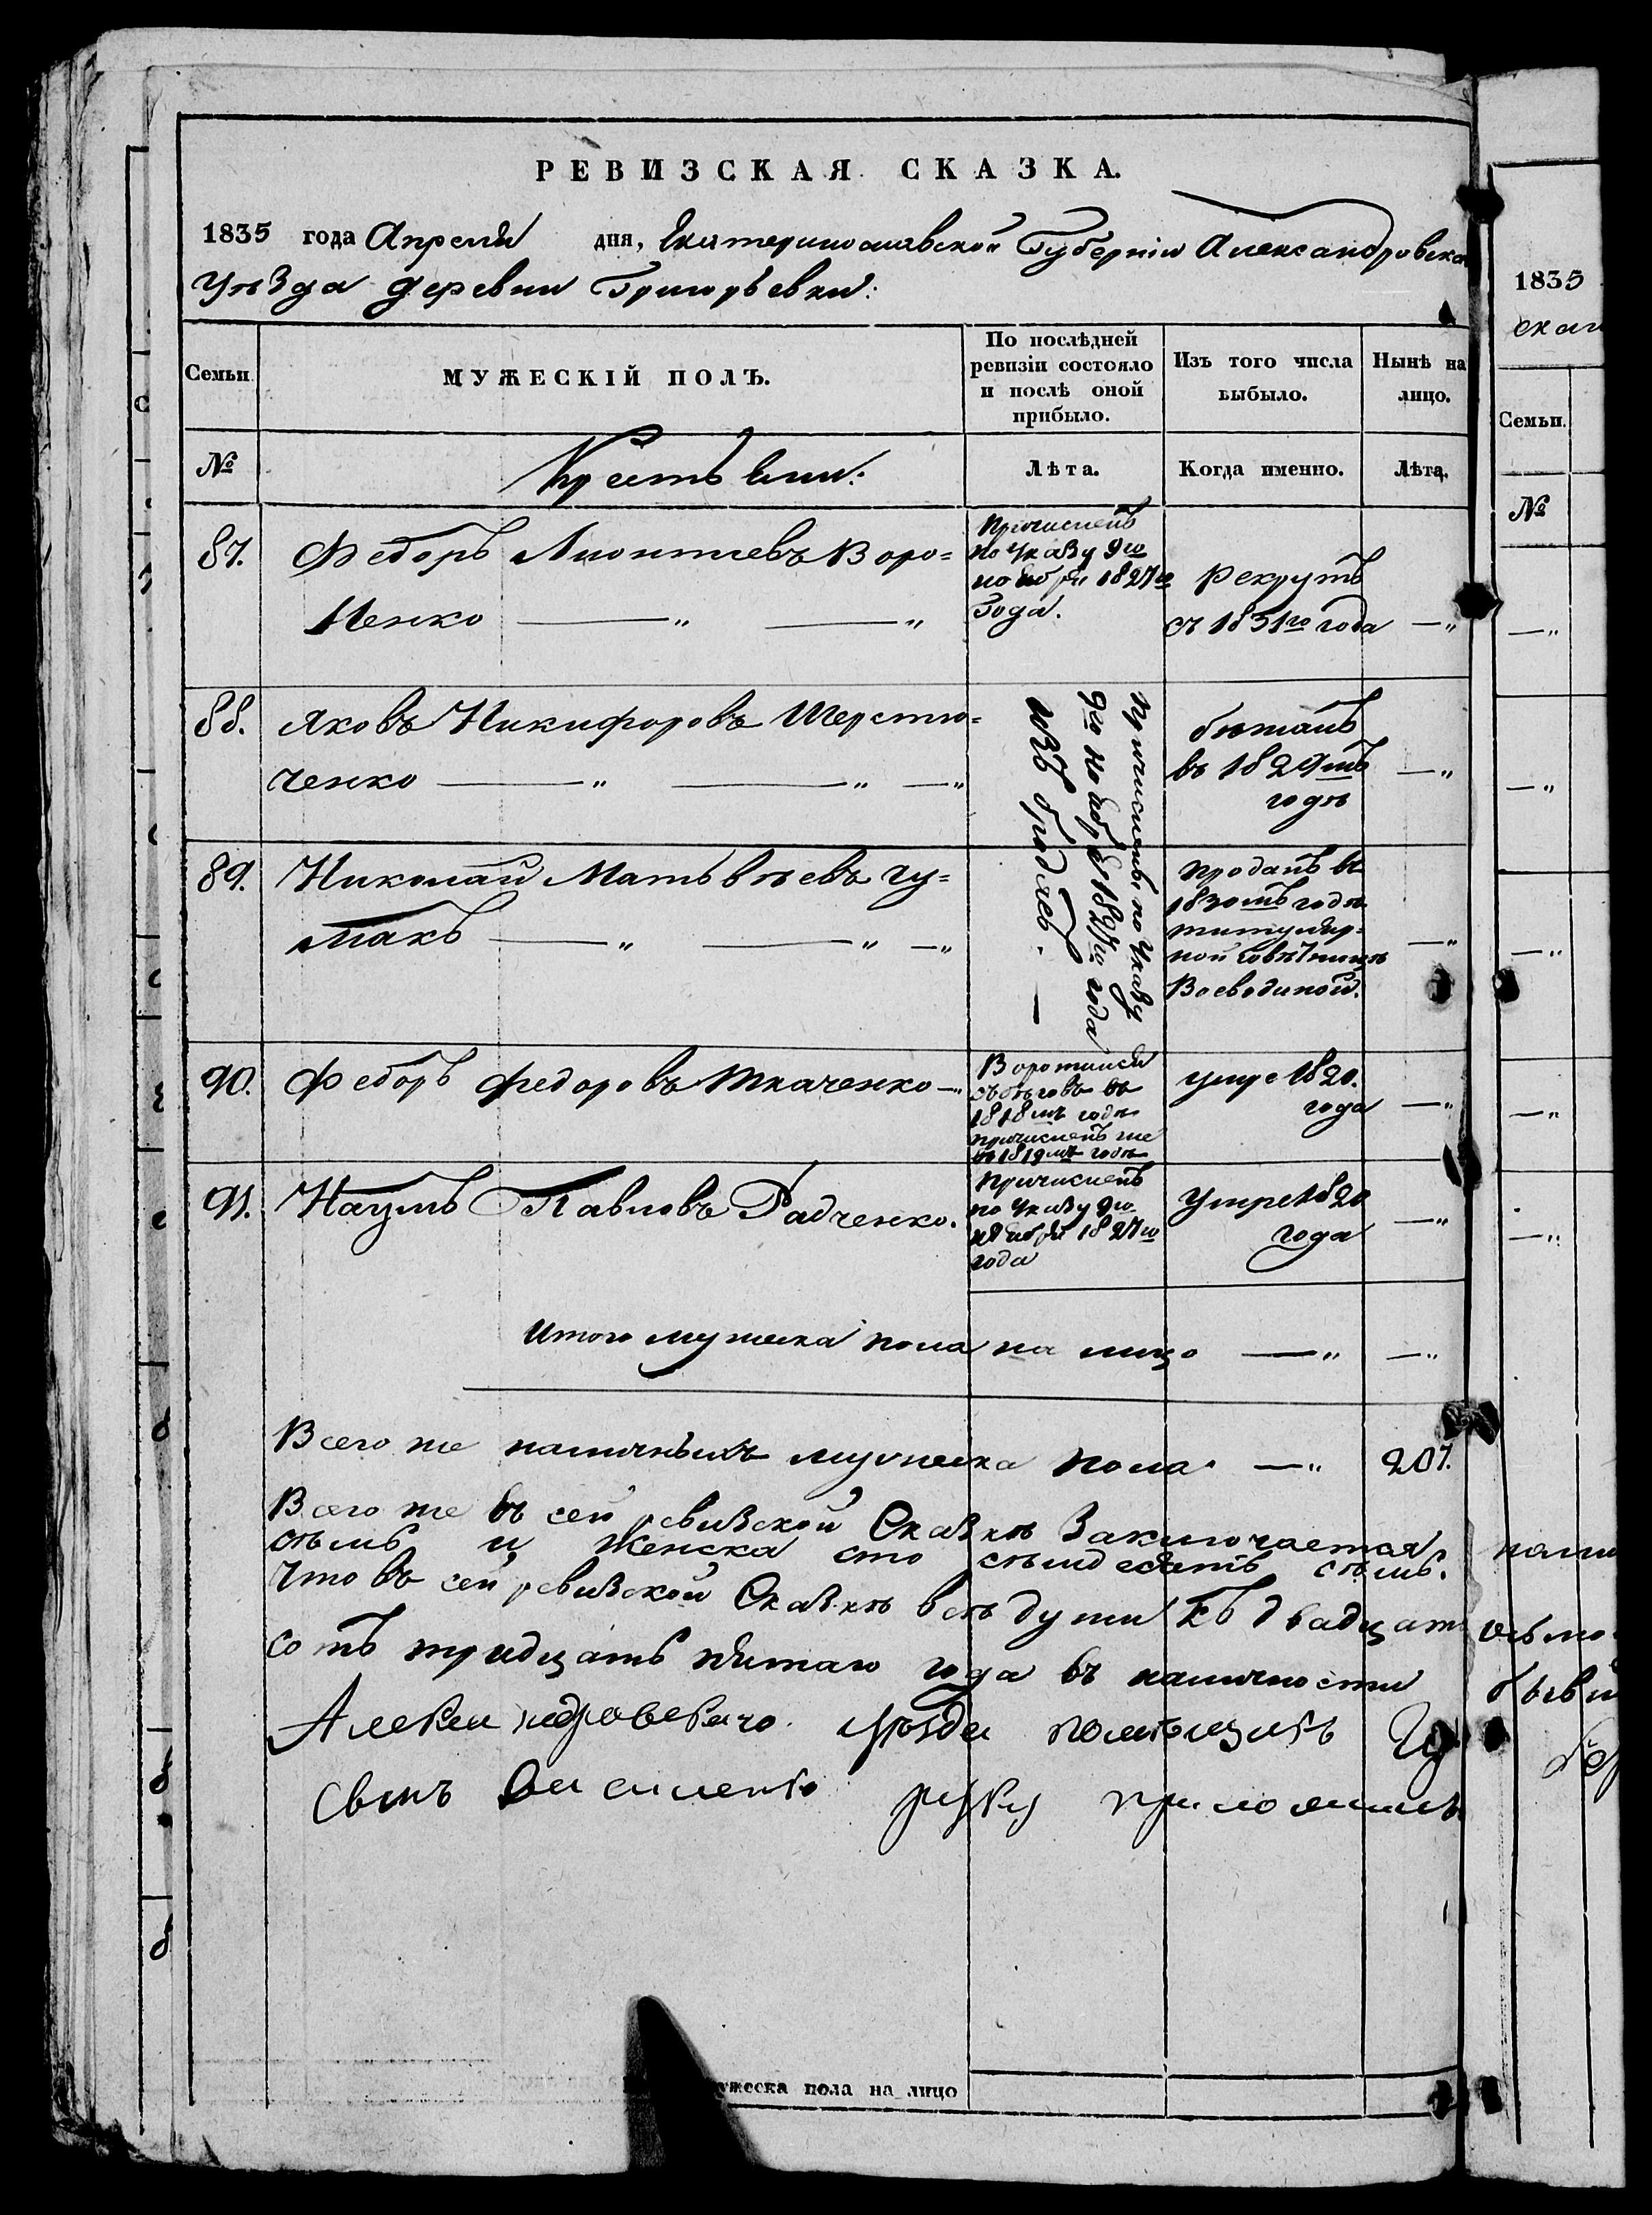 РЕВИЗСКАЯ СКАЗКА.
1835 года Апреля дня, Екатеринославской Губерніи Александровска
уѣзда деревни Григорьевки:
Семьи
МУЖЕСКІЙ ПОЛЪ.
По послѣдней
ревизіи состояло
и послѣ оной
прибыло.
Изъ того числа
выбыло.
Нынѣ на
лицо.
№
Крестьяни:
Лѣта.
Когда именно.
Лѣта.
87. Федоръ Лионтиевъ Воро=
ненко — „ — „
Причисленъ
по Указу 9го
ноября 1827го
года.
Рекрутъ
съ 1831го года — „
88. Яковъ Никифоровъ Шерстю=
ченко — „ — „ — „
Причислены по Указу
9го ноября 1827го года
изъ бродягъ. —
бѣжалъ
въ 1829мъ
годѣ
— „
89. Николай Матьвѣевъ Чу=
макъ — „ — „ — „
проданъ въ
1830мъ годѣ
титуляр=
ной Совѣтницѣ
Воеводиной.
— „
90. Федоръ Федоровъ Ткаченко — „
Воротился
съ бѣговъ въ
1818мъ годѣ
причисленъ же
въ 1819мъ годѣ
умре 1820.
года — „
91. Наумъ Павловъ Радченко.
Причисленъ
по Указу 9го
ноября 1827го
года
Умре 1820
года
— „
Итого мужеска пола на лицо — „ — „
Всего же наличныхъ мужеска пола — „ 207.
Всего же въ сей ревизской Сказкѣ Заключается
сѣмь и женска сто сѣмдесятъ сѣмь.
Что въ сей ревизской Сказкѣ всѣ души къ двадцат
сотъ тридцать пятаго года въ наличности
Александровскаго уѣзда помѣщикъ
руку приложилъ
мужеска пола на лицо
1835
скаг
Семьи.
№
— „
— „
— „
— „
— „